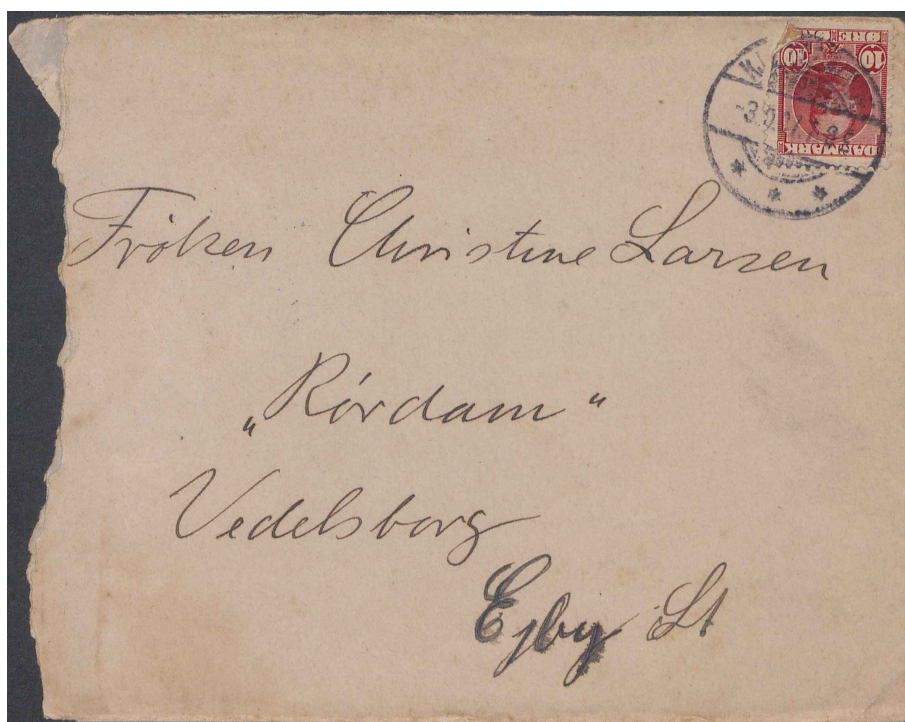 10 ØRE 10
DANMARK
Frøken Christine Larsen
„Rørdam“
Vedelsborg
Ejby St